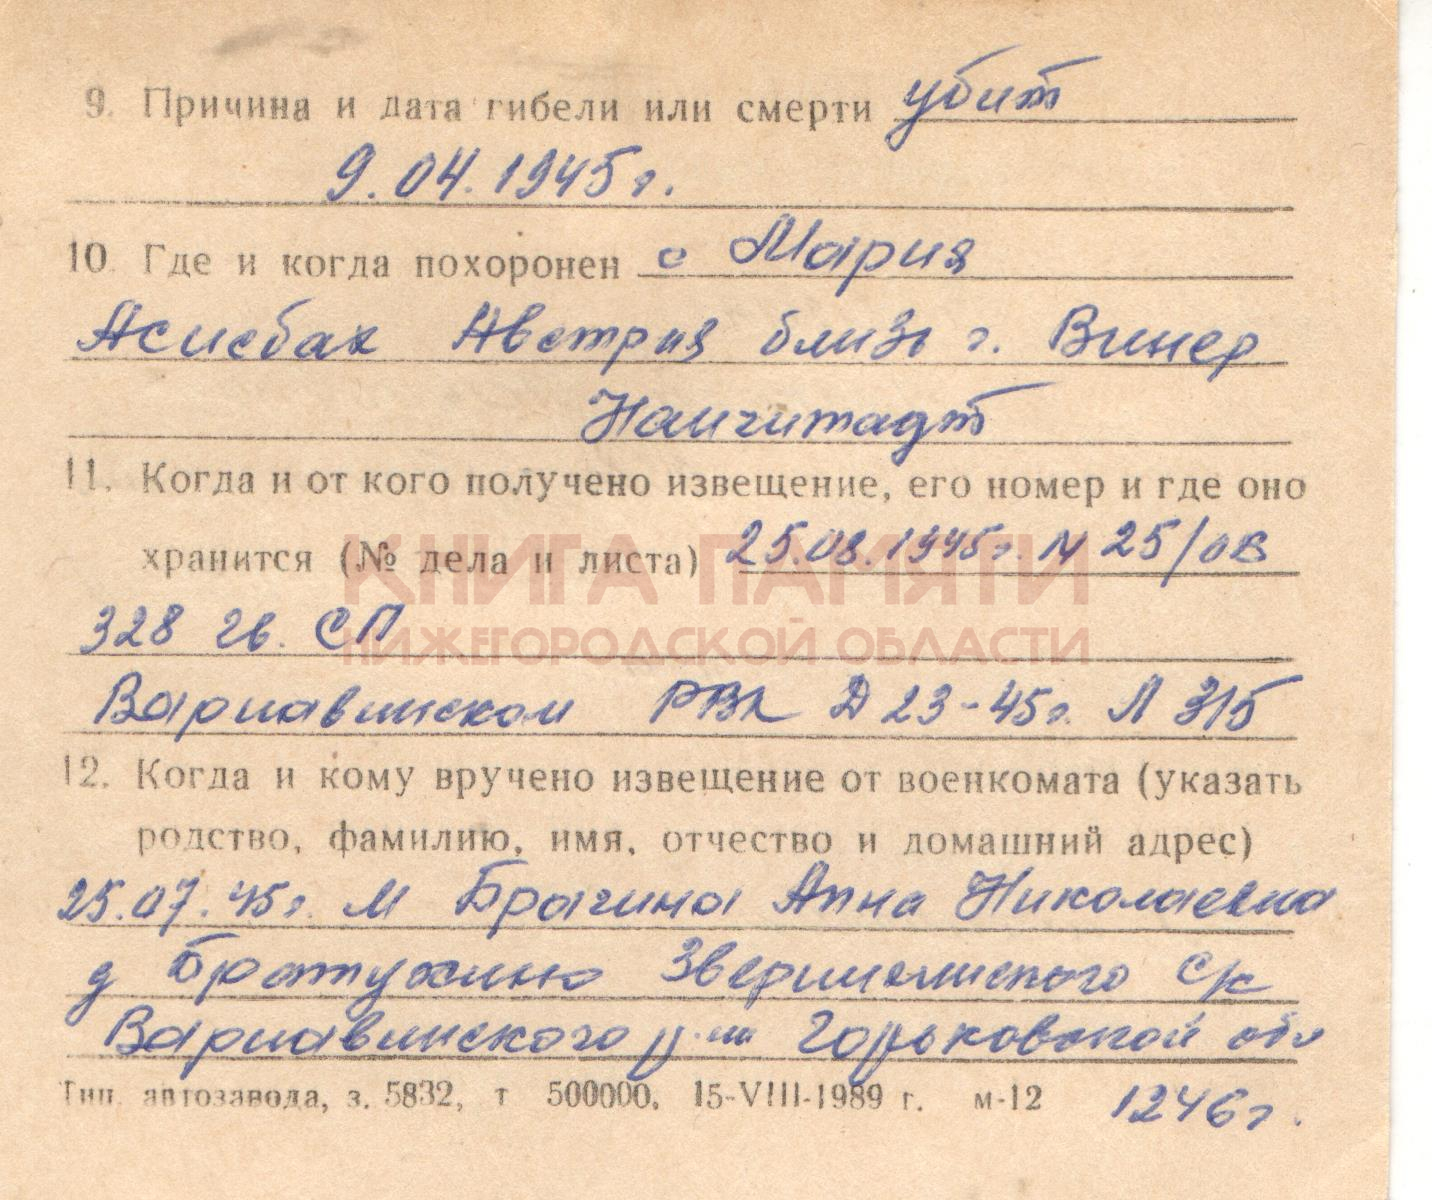 9. Причина и дата гибели или смерти убит
9.04.1945г.
10. Где и когда похоронен с Мария
Асисбах Австрия близь г. Винер
Наичитадт
11. Когда и от кого получено извещение, его номер и где оно
хранится (№ дела и листа) 25.08.1945г. N 25/ов
КНИГА ПАМЯТИ
328 гв. СП
НИЖЕГОРОДСКОЙ ОБЛАСТИ
Варнавинском РВК Д 23-45г. Л 315
12. Когда и кому вручено извещение от военкомата (указать
родство, фамилию, имя, отчество и домашний адрес)
25.07.45г. М Брагина Анна Николаевна
д Братухино с/с
Варнавинского р-на Горьковской обл
Тип. автозавода, з. 5832, т 500000, 15-VIII-1989 г. м-12 1246г.